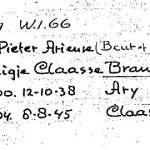 W.I.66
Pieter Arieuse (Bout +
Claasse Brau
00. 12-10-38 Ary
04. 8-8-45 Claas